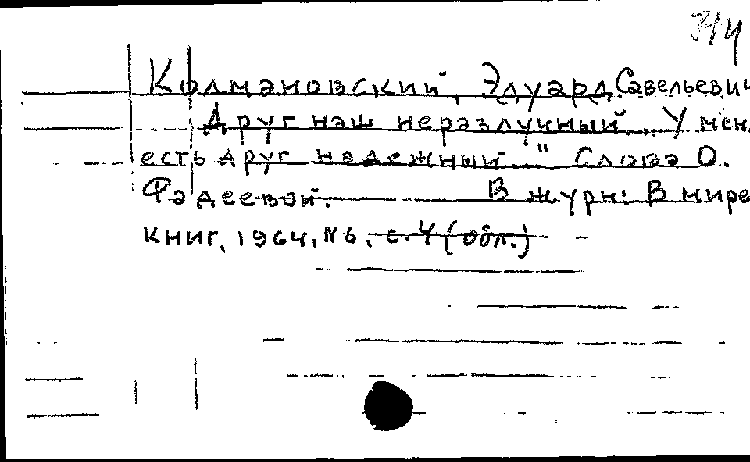 Колмановский, Эдуард Савельевич
Друг наш неразлучный. „У мен
есть друг надежный..." Слова О.
Фадеевой. В журн: В мире
книг, 1964, №6, с. 4 (обл.)